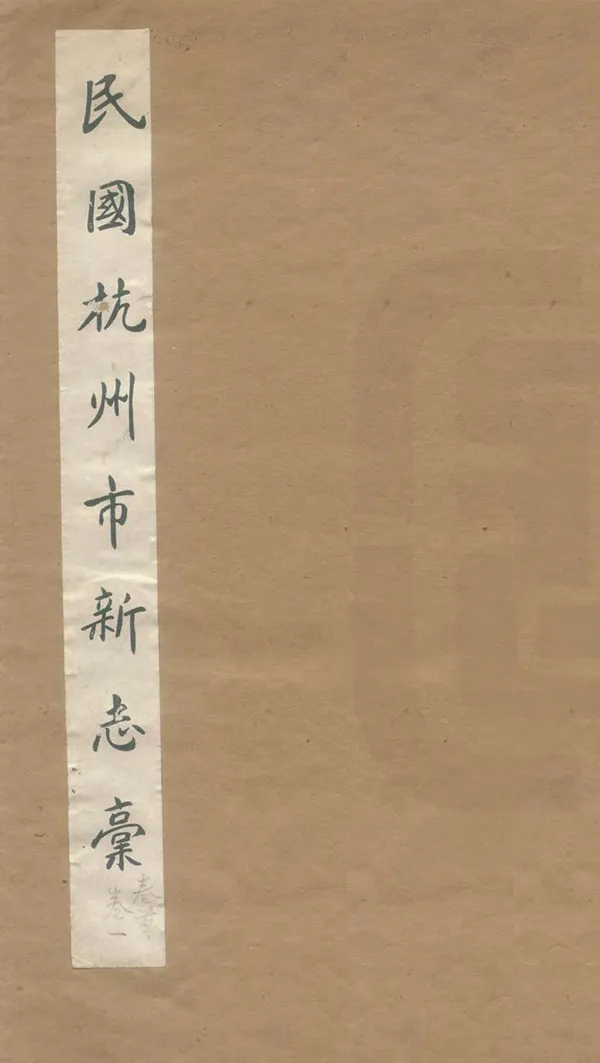 民國杭州市新志稾
卷首
卷一